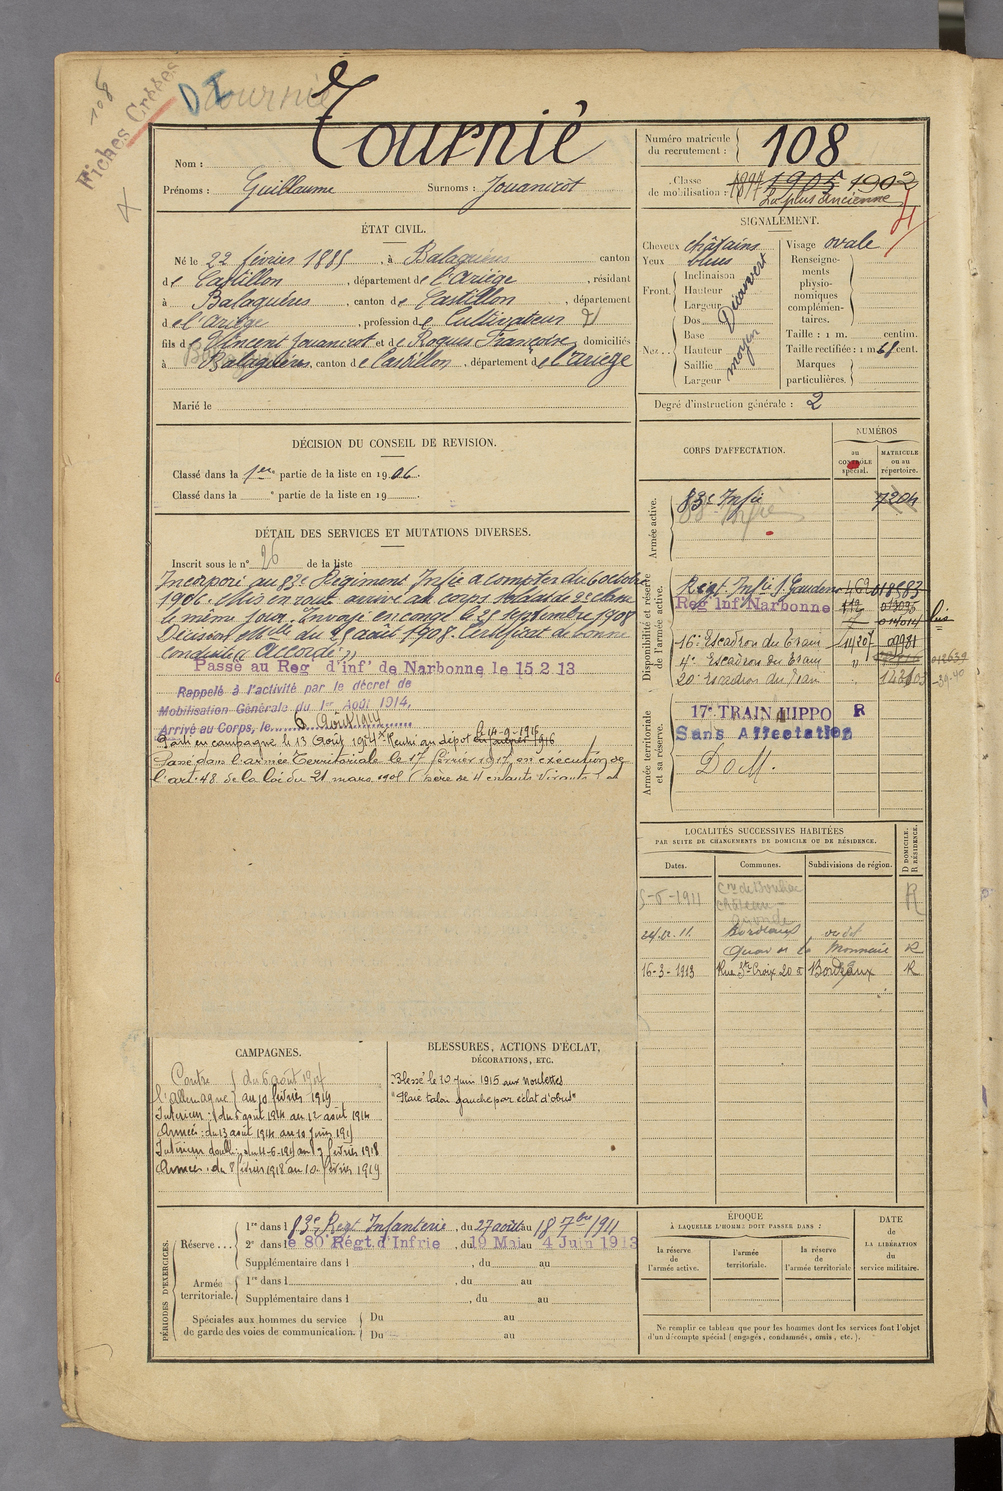 108
Fiches Croses
Tournié
Nom : Tournié
Prénoms : Guillaume Surnoms : Jouanicot
Numéro matricule
du recrutement : 108
Classe
de mobilisation : 1897 1905 1902
La plus ancienne
ÉTAT CIVIL.
Né le 22 février 1885, à Balaguères canton
de Castillon, département de l'Ariège, résidant
à Balaguères, canton de Castillon, département
de l'Ariège, profession de Cultivateur
fils de Vincent Jouanicot et de Roques Françoise domiciliés
à Balaguères, canton de Castillon, département de l'Ariège
Marié le
SIGNALEMENT.
Cheveux châtains
Yeux bleus
Front. Inclinaison
Hauteur
Largeur
Découvert
Nez. Dos
Base
Hauteur
Saillie
Largeur
moyen
Visage ovale
Renseigne-
ments
physio-
nomiques
complémen-
taires.
Taille : 1 m. centim.
Taille rectifiée : 1 m 68 cent.
Marques
particulières.
Degré d'instruction générale : 2
DÉCISION DU CONSEIL DE REVISION.
Classé dans la 1ere partie de la liste en 1906
Classé dans la e partie de la liste en 19
DÉTAIL DES SERVICES ET MUTATIONS DIVERSES.
Inscrit sous le n° 26 de la liste
Incorporé au 83e Régiment Infie à compter du 6 octobre
1906. Mis en route arrivé au corps soldat de 2e classe
le même jour. Envoyé en congé le 25 septembre 1908
Décision Mlle du 25 août 1908. Certificat de bonne
conduite "Accordé"
Passé au Reg d'inf de Narbonne le 15 2 13
Rappelé à l'activité par le décret de
Mobilisation Générale du 1er Août 1914,
Arrivé au Corps, le 6 Août 1914
Parti en campagne le 13 Août 1914 Rentré au dépôt en 1916
le 14-9-1915
Passé dans l'armée Territoriale le 17 février 1917 en exécution de
l'art. 48 de la loi du 21 mars 1905 (père de 4 enfants vivants)
CORPS D'AFFECTATION.
NUMÉROS
au
CONTRÔLE
spécial.
MATRICULE
ou au
répertoire.
Armée active.
83e Infie 7204
Disponibilité et réserve
de l'armée active.
Régt. Infie St Gaudens 462 018583
Reg Inf Narbonne
16e Escadron du Train
4e Escadron du Train
20e Escadron du Train
Armée territoriale
et sa réserve.
17e TRAIN HIPPO R
Sans Affectation
DoM.
LOCALITÉS SUCCESSIVES HABITÉES
PAR SUITE DE CHANGEMENTS DE DOMICILE OU DE RÉSIDENCE.
Dates. Communes. Subdivisions de région.
D DOMICILE.
R RÉSIDENCE.
5-5-1911 R
Bordeaux
Quai de la Monnaie R
16-3-1913 Rue Ste Croix 20 Bordeaux R
CAMPAGNES.
Contre du 6 août 1914
l'Allemagne au 10 février 1919
Intérieur : du 6 août 1914 au 12 août 1914
Armées : du 13 août 1914 au 10 juin 1915
Intérieur du 11-6-1915 au 7 février 1918
Armées : du 8 février 1918 au 10 février 1919
BLESSURES, ACTIONS D'ÉCLAT,
DÉCORATIONS, ETC.
Blessé le 10 juin 1915 aux noulettes
"Plaie talon gauche par éclat d'obus"
PÉRIODES D'EXERCICES.
Réserve
1re dans l 83e Régt Infanterie, du 27 août au 18 7bre 1911
2e dans le 80 Régt d'Infrie, du 19 Mai au 4 Juin 1913
Supplémentaire dans l , du au
Armée
territoriale.
1re dans l , du au
Supplémentaire dans l , du au
Spéciales aux hommes du service
de garde des voies de communication.
Du au
Du au
ÉPOQUE
À LAQUELLE L'HOMME DOIT PASSER DANS :
la réserve
de
l'armée active.
l'armée
territoriale.
la réserve
de
l'armée territoriale
DATE
de
LA LIBÉRATION
du
service militaire.
Ne remplir ce tableau que pour les hommes dont les services font l'objet
d'un décompte spécial (engagés, condamnés, omis, etc.).